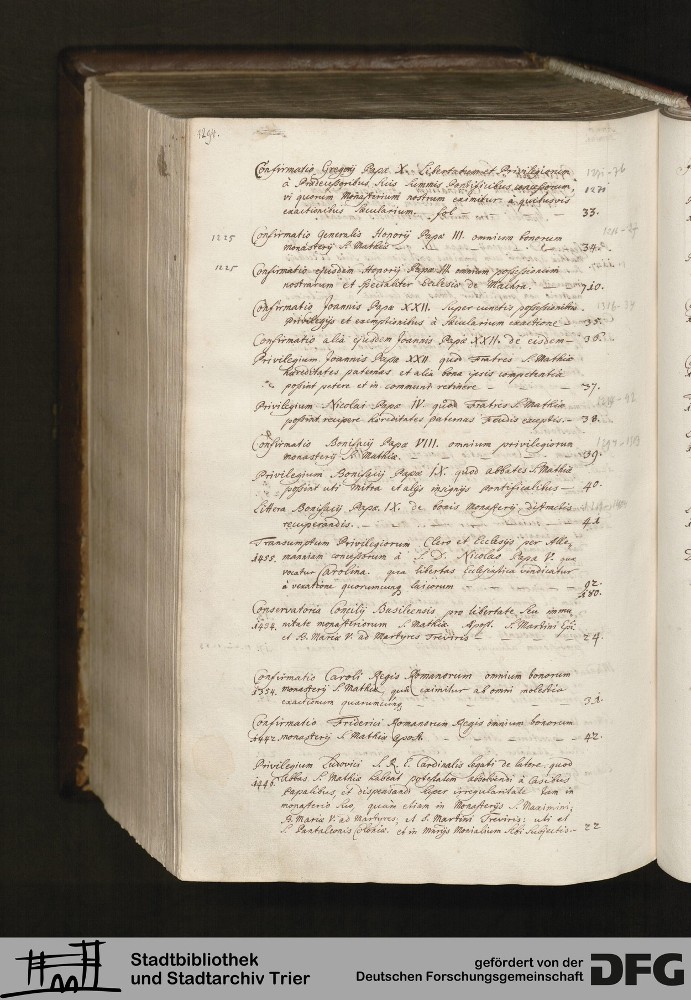 1294.
Confirmatio Gregorij Papæ X. Libertatum et Privilegiorum 1271-76
à Prædecessoribus suis summis Pontificibus concessorum, 1271
vi quorum Monasterium nostrum eximitur à quibusvis
exactionibus sæcularium. fol — 33.
1225 Confirmatio generalis Honorij Papæ III. omnium bonorum
monasterij S. Mathiæ — 34.
1225 Confirmatio ejusdem Honorij Papæ III. omnium possessionum
nostrarum et specialiter Ecclesiæ de Machra. — 710.
Confirmatio Joannis Papæ XXII. super cunctis possessionibus
privilegijs et exemptionibus à sæcularium exactione — 35.
Confirmatio alia ejusdem Joannis Papæ XXII. de eisdem — 36.
Privilegium Joannis Papæ XXII quod Fratres S. Mathiæ
hæreditates paternas et alia bona ipsis competentia
possint petere et in communi retinere — 37.
Privilegium Nicolai Papæ IV. quod Fratres S. Mathiæ
possint recipere hæreditates paternas Feudis exceptis. — 38.
Confirmatio Bonifacij Papæ VIII. omnium privilegiorum
monasterij S. Mathiæ. — 39.
Privilegium Bonifacij Papæ IX. quod abbates S. Mathiæ
possint uti mitra et alijs insignijs pontificalibus — 40.
Littera Bonifacij Papæ IX. de bonis Monasterij distractis
recuperandis. — 41
Transumptum Privilegiorum Clero et Ecclesijs per Alle,
1455. manniam concessorum à S. D. Nicolao Papa V. quæ
vocatur Carolina. qua libertas Ecclesiastica vindicatur
à vexatione quorumcunq laicorum — 92.
180.
Conservatoria Concilij Basileensis pro libertate seu immu
1434. nitate monasteriorum S. Mathiæ Apost. S. Martini Epi
et B. Mariæ V. ad Martyres Treviris — 24.
Confirmatio Caroli Regis Romanorum omnium bonorum
1354. monasterij S. Mathiæ, quâ eximitur ab omni molestia
exactionum quarumcunq — 31.
Confirmatio Friderici Romanorum Regis omnium bonorum
1442. monasterij S. Mathiæ Apost. — 42.
Privilegium Ludovici S. R. E. Cardinalis legati de latere, quod
1446. Abbas S. Mathiæ habeat potestatem absolvendi à casibus
Papalibus, et dispensandi super irregularitate tam in
monasterio suo, quam etiam in Monasterijs S. Maximini;
B. Mariæ V. ad Martyres, et S. Martini Treviris: uti et
S. Pantaleonis Coloniæ. et in Monrijs Monialium sibi subjectis. — 22
Stadtbibliothek
und Stadtarchiv Trier
gefördert von der
Deutschen Forschungsgemeinschaft
DFG